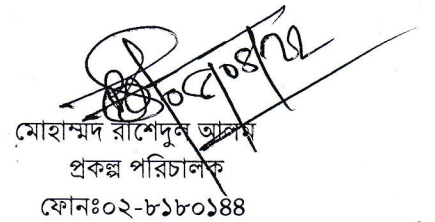 ০৫/০৪/২২
মোহাম্মদ রাশেদুল আলম
প্রকল্প পরিচালক
ফোনঃ০২-৮১৮০১৪৪